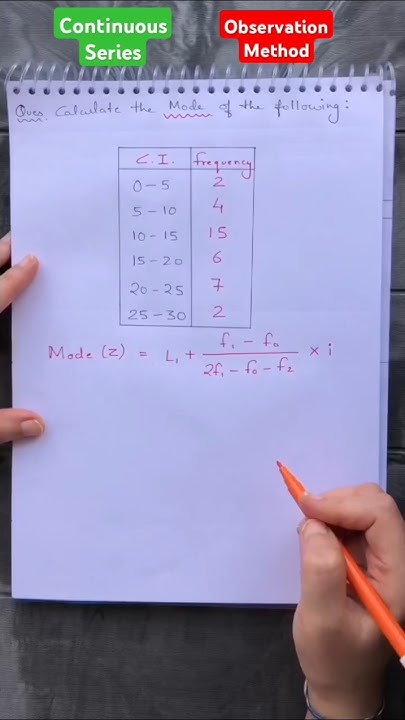 Continuous
Series
Observation
Method
Ques. Calculate the Mode of the following:
C.I. frequency
0-5 2
5-10 4
10-15 15
15-20 6
20-25 7
25-30 2
Mode (Z) = L₁ + f₁ - f₀ / 2f₁ - f₀ - f₂ × i